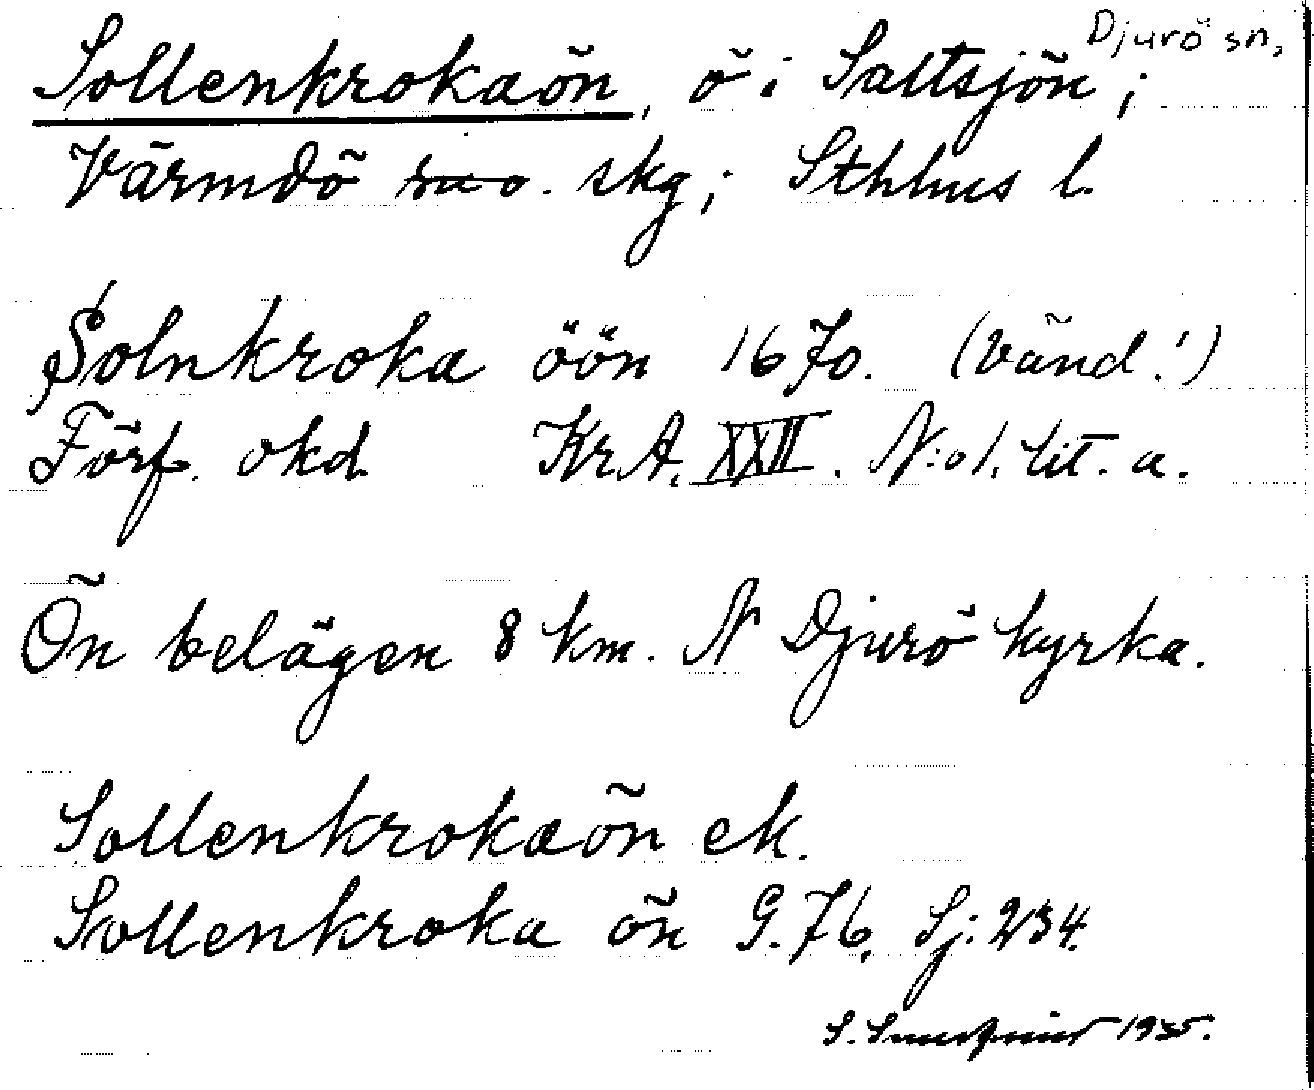 Djurö sn,
Sollenkrokaön, ö i Saltsjön;
Värmdö skg; Sthlms l.
Solnkroka öön 1670. (vänd!)
Förf. okd. Kr.A. XXII. N:o 1. lit. a.
Ön belägen 8 km. N Djurö kyrka.
Sollenkrokaön ek.
Sollenkroka ön G. 76, Sj: 234.
S. 1935.